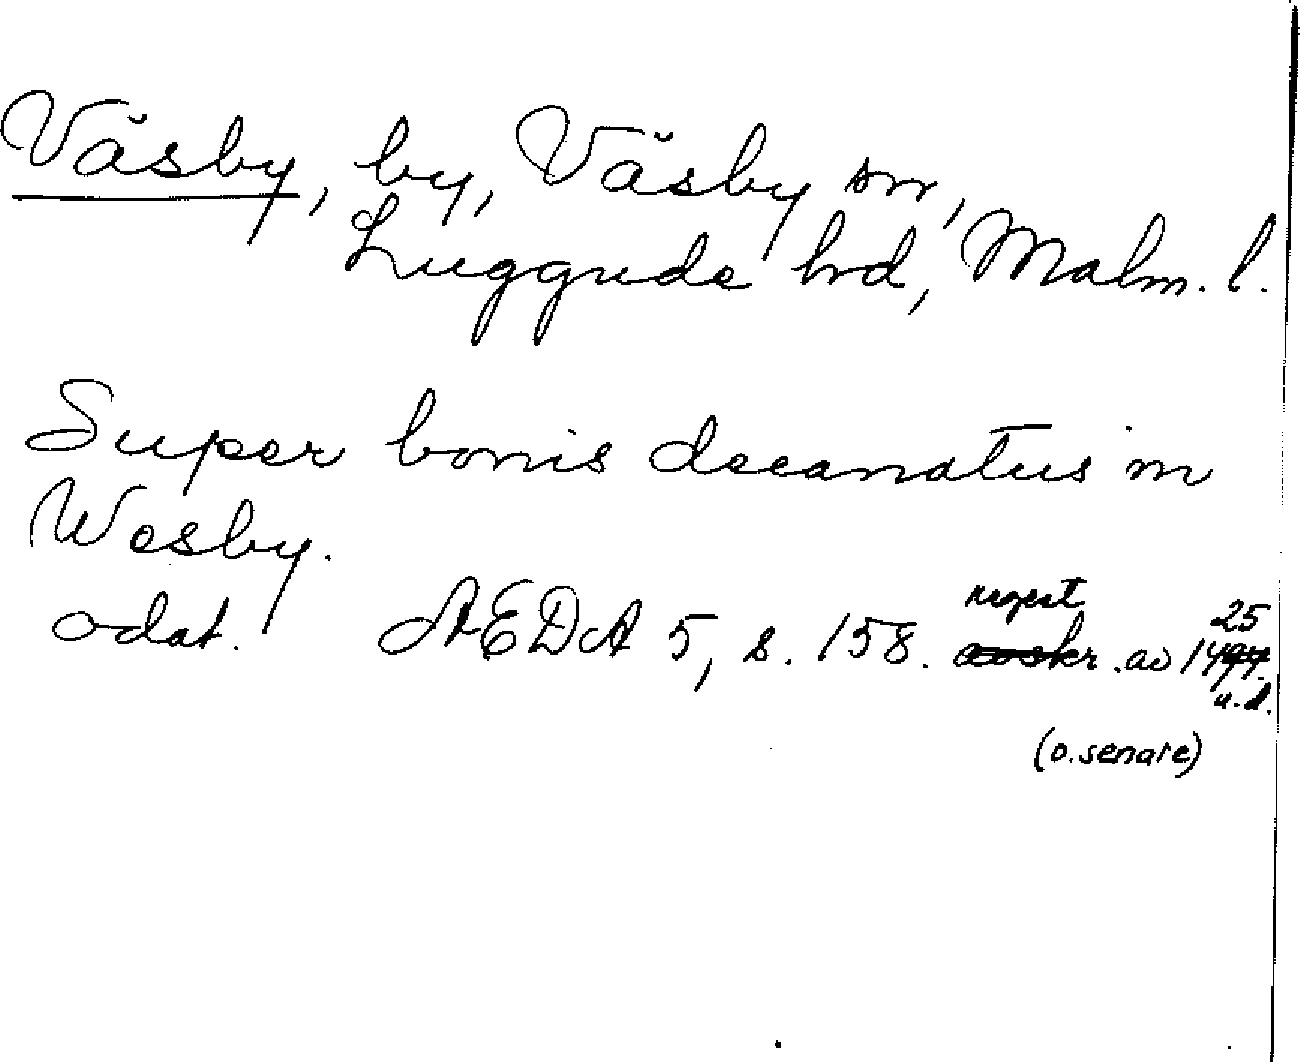 Väsby, by, Väsby sn,
Luggude hd, Malm. l.
Super bonis decanatus in
Wesby.
regest 25
odat. AEDA 5, s. 158. avskr. av 1494
u.d.
(o. senare)